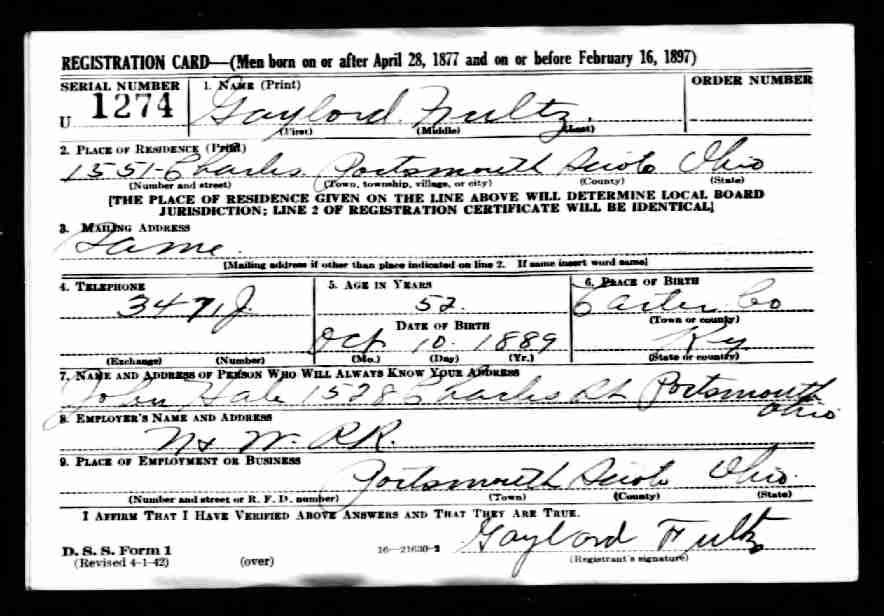 REGISTRATION CARD—(Men born on or after April 28, 1877 and on or before February 16, 1897)
SERIAL NUMBER 1. NAME (Print) ORDER NUMBER
U 1274 Gaylord Fultz.
(First) (Middle) (Last)
2. PLACE OF RESIDENCE (Print)
1551-Charles. Portsmouth Scioto Ohio
(Number and street) (Town, township, village, or city) (County) (State)
[THE PLACE OF RESIDENCE GIVEN ON THE LINE ABOVE WILL DETERMINE LOCAL BOARD
JURISDICTION; LINE 2 OF REGISTRATION CERTIFICATE WILL BE IDENTICAL]
3. MAILING ADDRESS
Same.
[Mailing address if other than place indicated on line 2. If same insert word same]
4. TELEPHONE 5. AGE IN YEARS 6. PLACE OF BIRTH
3471J. 52. Carter Co
DATE OF BIRTH (Town or county)
Oct 10. 1889 Ky
(Exchange) (Number) (Mo.) (Day) (Yr.) (State or country)
7. NAME AND ADDRESS OF PERSON WHO WILL ALWAYS KNOW YOUR ADDRESS
John Hale 1528 Charles St Portsmouth
Ohio
8. EMPLOYER'S NAME AND ADDRESS
N & W. RR.
9. PLACE OF EMPLOYMENT OR BUSINESS
Portsmouth Scioto Ohio.
(Number and street or R. F. D. number) (Town) (County) (State)
I AFFIRM THAT I HAVE VERIFIED ABOVE ANSWERS AND THAT THEY ARE TRUE.
Gaylord Fultz
D. S. S. Form 1 16—21630-2 (Registrant's signature)
(Revised 4-1-42) (over)